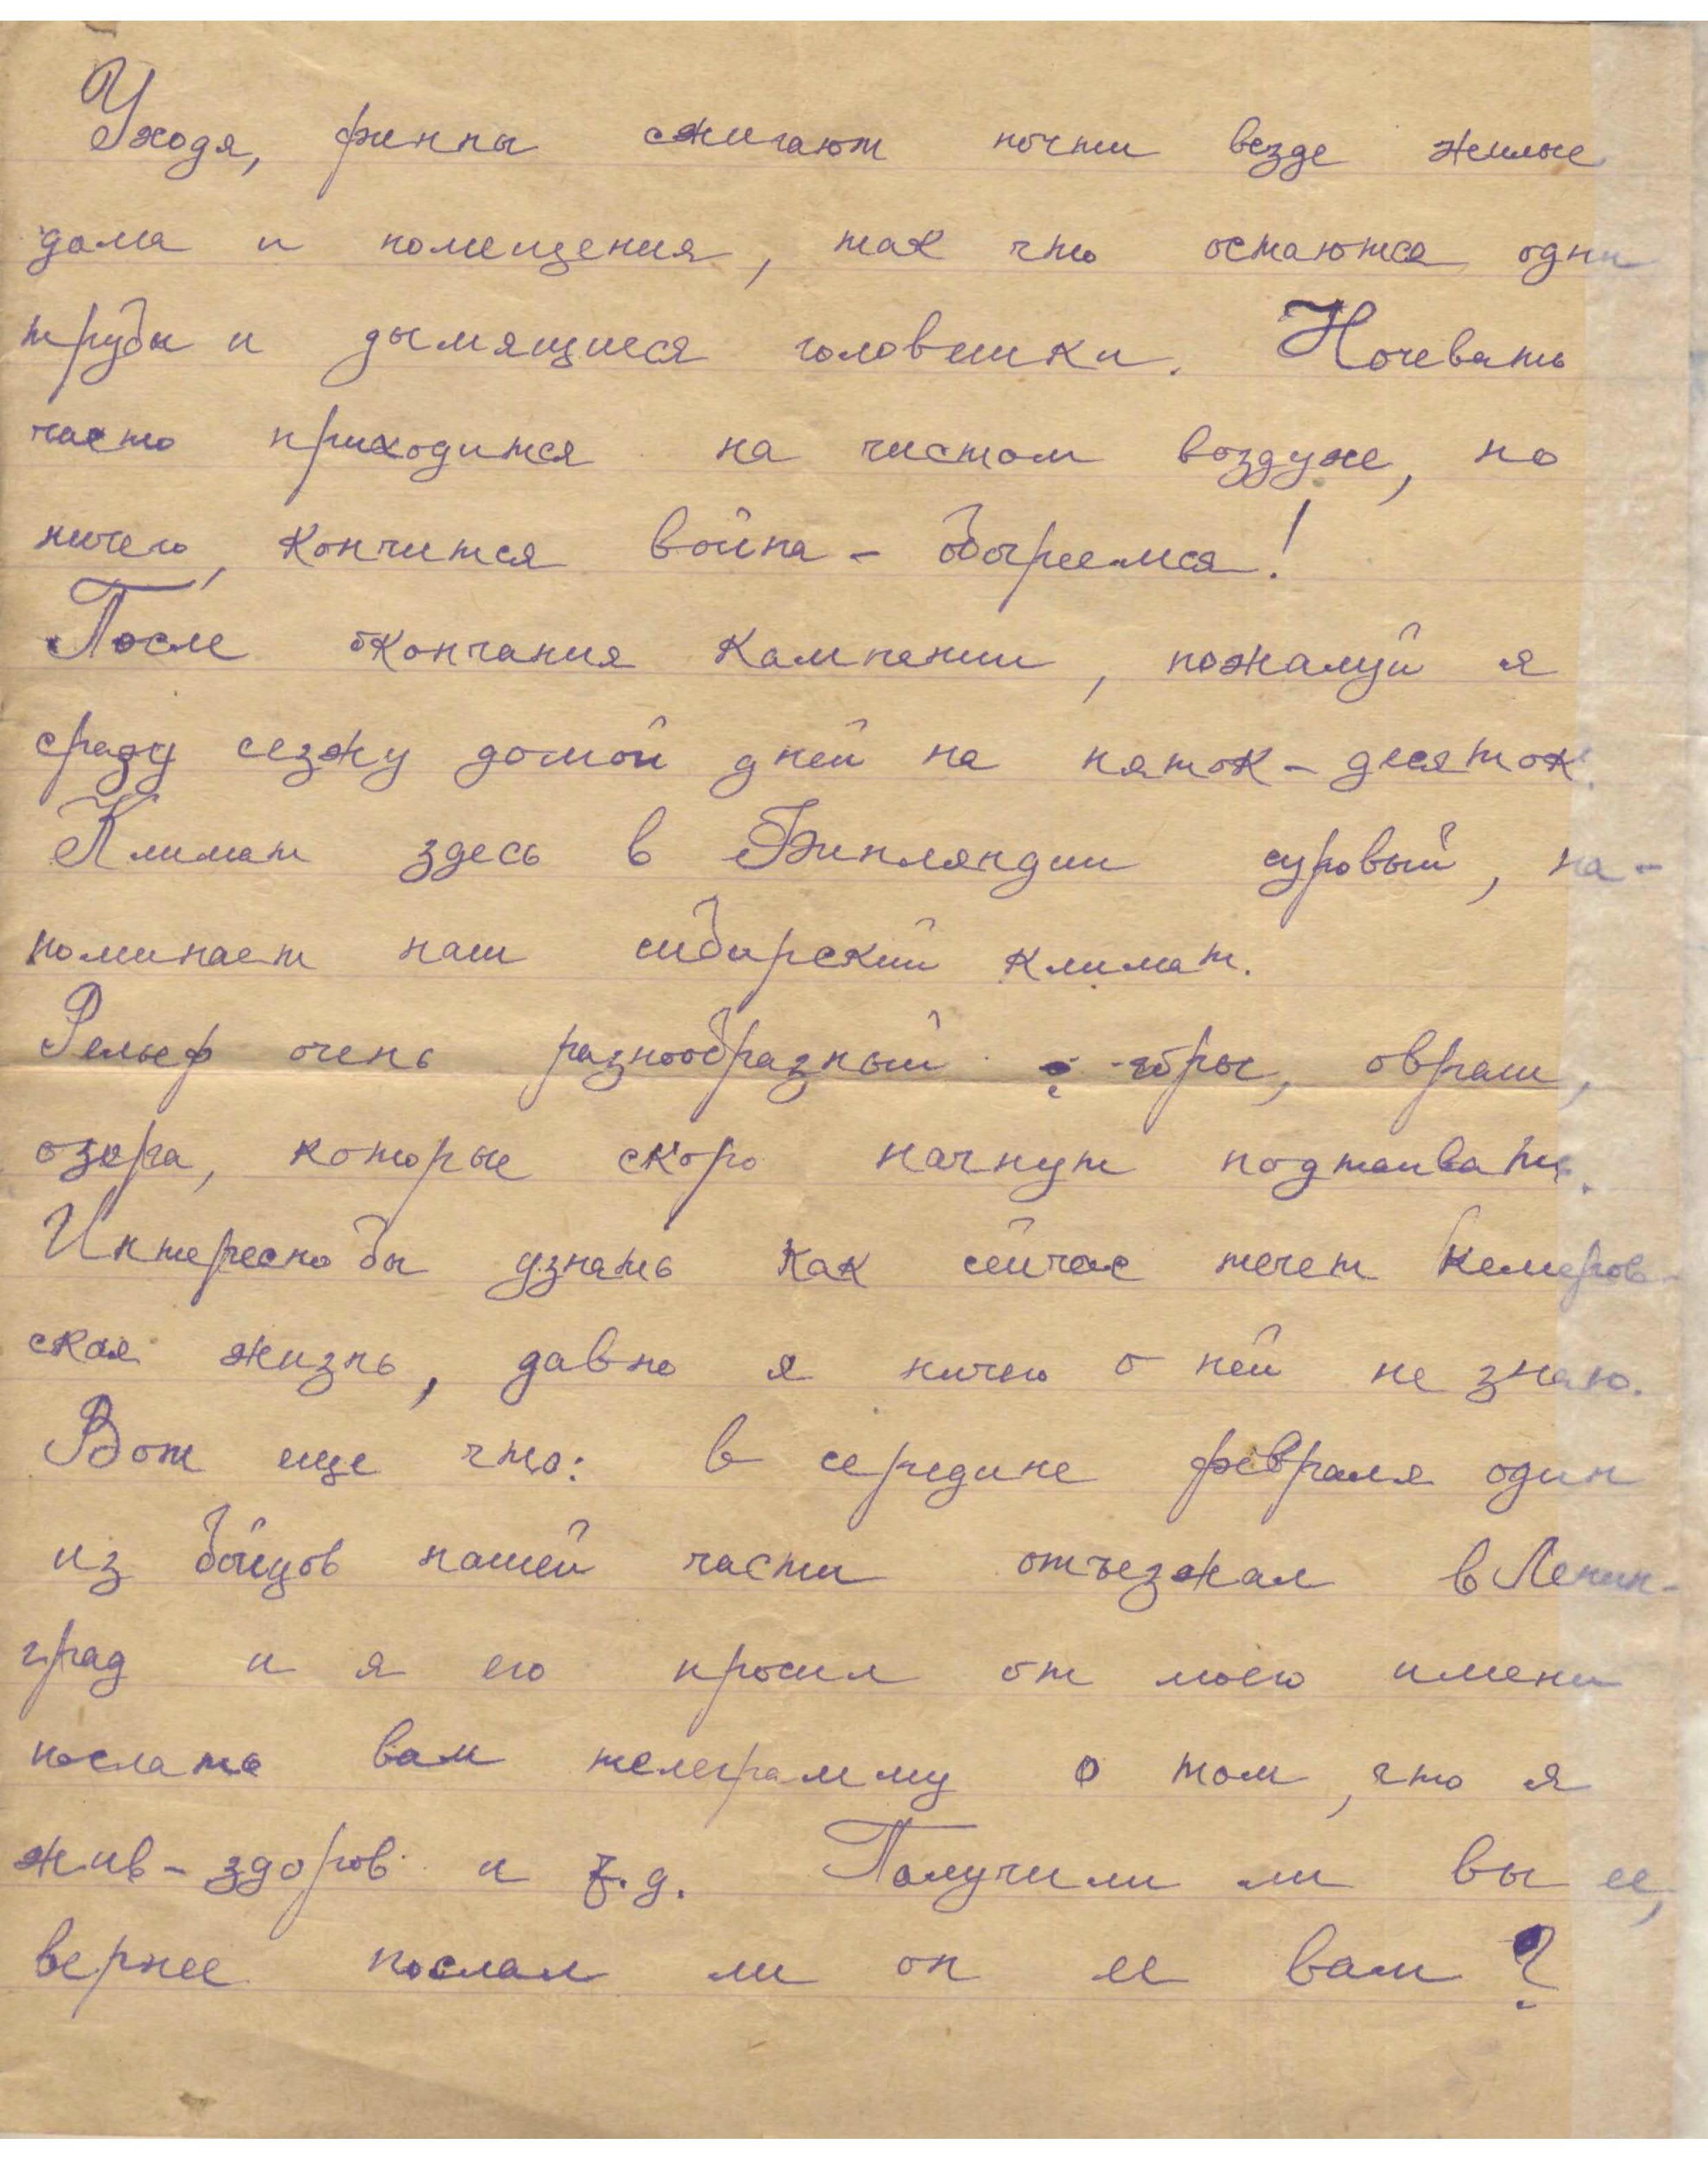 Уходя, финны сжигают почти везде жилые
дома и помещения, так что остаются одни
трубы и дымящиеся головешки. Ночевать
часто приходится на чистом воздухе, но
ничего, кончится война - обогреемся!
После окончания кампании, пожалуй я
сразу сезжу домой дней на пяток - десяток.
Климат здесь в Финляндии суровый, на-
поминает наш сибирский климат.
Рельеф очень разнообразный : горы, овраги,
озера, которые скоро начнут подтаивать.
Интересно бы узнать как сейчас течет Кемеров-
ская жизнь, давно я ничего о ней не знаю.
Вот еще что: в середине февраля один
из бойцов нашей части отъезжал в Ленин-
град и я его просил от моего имени
послать вам телеграмму о том, что я
жив - здоров и т.д. Получили ли вы ее,
вернее послал ли он ее вам?